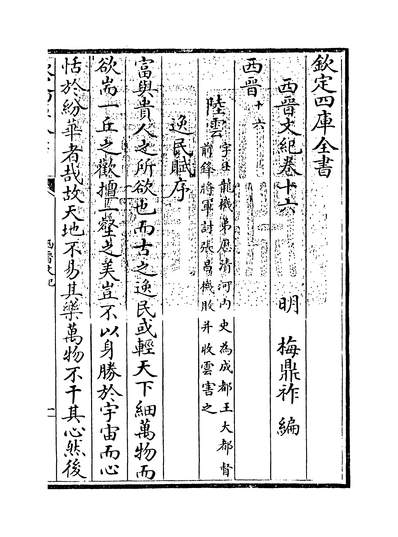 欽定四庫全書
西晉文紀卷十六
明 梅鼎祚 編
西晉十六
陸雲字士龍機弟歷清河内史為成都王大都督
前鋒將軍討張昌機敗并收雲害之
逸民賦序
富與貴人之所欲也而古之逸民或輕天下細萬物而
欲耑一丘之歡擅一壑之美豈不以身勝於宇宙而心
恬於紛華者哉故天地不易其樂萬物不干其心然後
西晉文紀